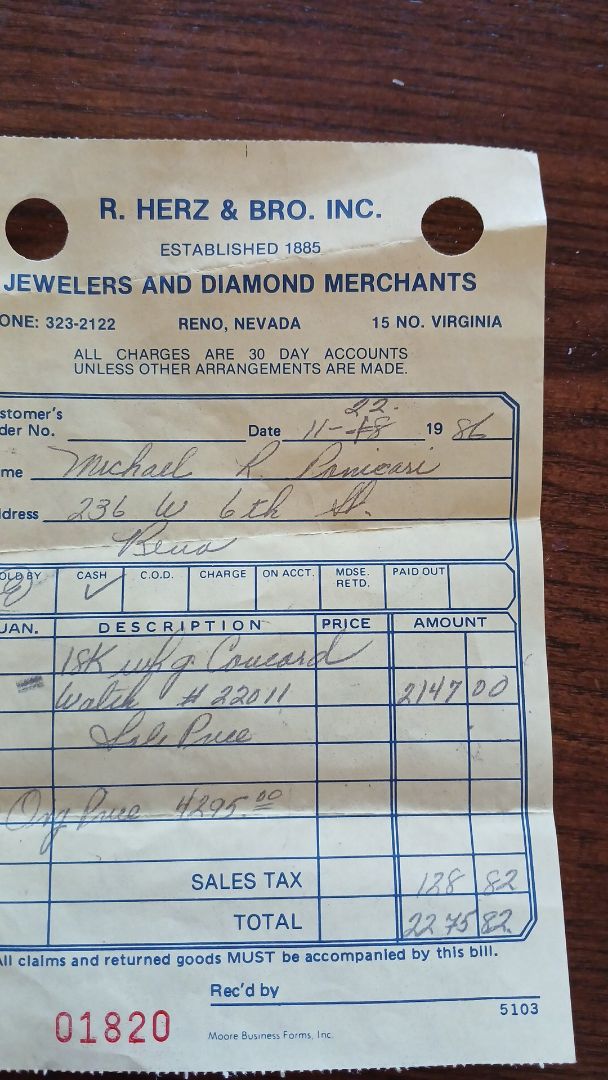 R. HERZ & BRO. INC.
ESTABLISHED 1885
JEWELERS AND DIAMOND MERCHANTS
ONE: 323-2122 RENO, NEVADA 15 NO. VIRGINIA
ALL CHARGES ARE 30 DAY ACCOUNTS
UNLESS OTHER ARRANGEMENTS ARE MADE.
stomer's
der No. Date 11-22- 19 86
me Michael R.
ddress 236 W 6th St.
Reno
OLD BY CASH C.O.D. CHARGE ON ACCT. MDSE. RETD. PAID OUT
UAN. DESCRIPTION PRICE AMOUNT
18K Concord
Watch # 22011 2147 00
Sale Price
Org Price 4295.00
SALES TAX 128 82
TOTAL 2275 82
All claims and returned goods MUST be accompanied by this bill.
Rec'd by
5103
01820 Moore Business Forms, Inc.